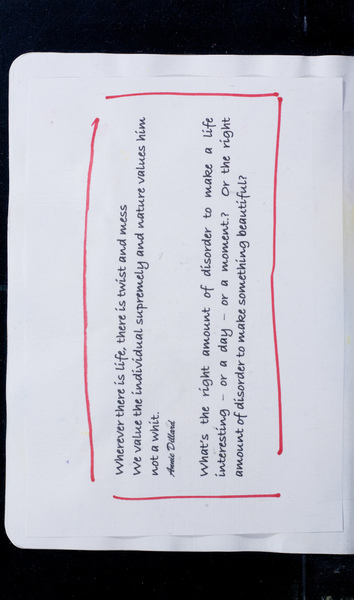 Wherever there is life, there is twist and mess
We value the individual supremely and nature values him
not a whit.
Annie Dillard
What's the right amount of disorder to make a life
interesting – or a day – or a moment? Or the right
amount of disorder to make something beautiful?